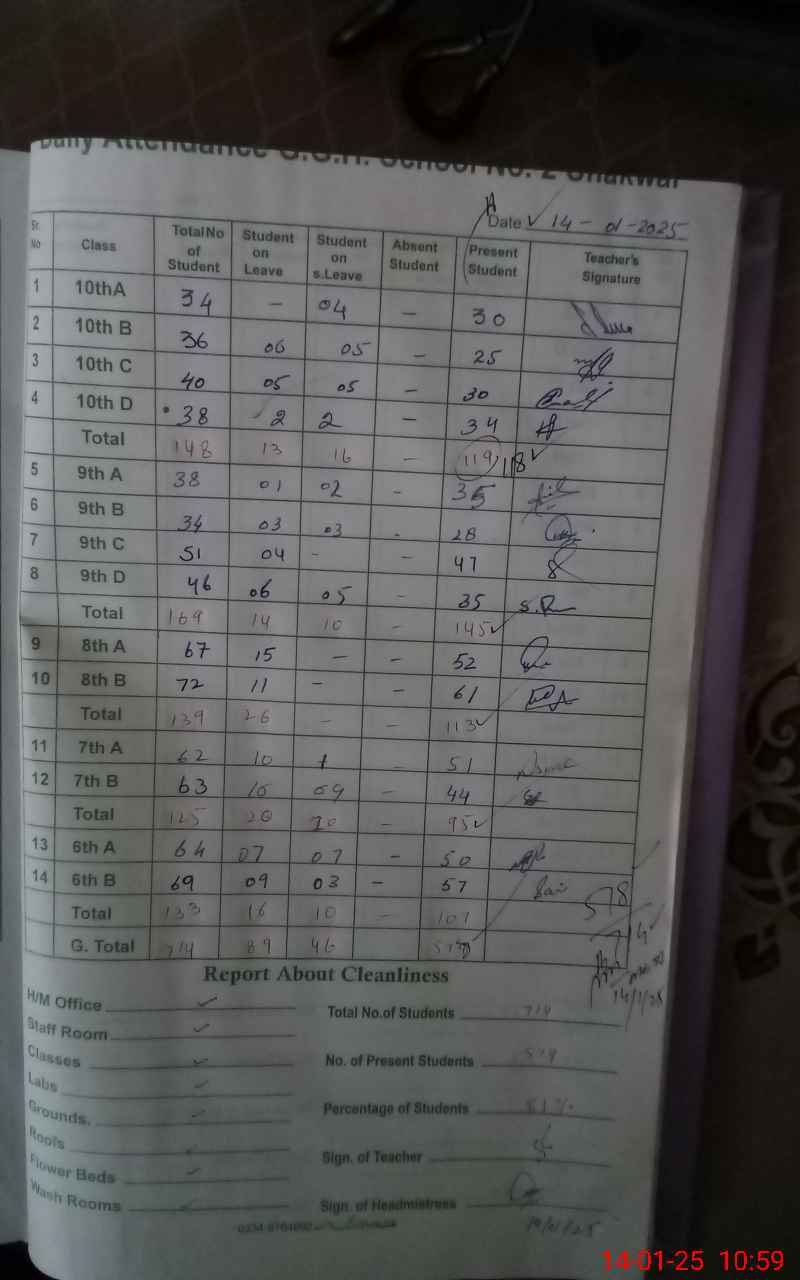 Daily Attendance G.G.H. School No. 2 Chakwal
Date 14 - 01 - 2025
Sr. No Class Total No of Student Student on Leave Student on s.Leave Absent Student Present Student Teacher's Signature
1 10thA 34 - 04 - 30
2 10th B 36 06 05 - 25
3 10th C 40 05 05 - 30
4 10th D 38 2 2 - 34
Total 148 13 16 - 119 118
5 9th A 38 01 02 - 35
6 9th B 34 03 03 - 28
7 9th C 51 04 - - 47
8 9th D 46 06 05 35 S.R
Total 169 14 10 - 145
9 8th A 67 15 - - 52
10 8th B 72 11 - - 61
Total 139 26 - - 113
11 7th A 62 10 1 51
12 7th B 63 10 09 - 44
Total 125 20 10 - 95
13 6th A 64 07 07 - 50
14 6th B 69 09 03 - 57
Total 133 16 10 - 107 578
G. Total 714 89 46 714
14/1/25
Report About Cleanliness
H/M Office ✓ Total No.of Students 714
Staff Room ✓
Classes ✓ No. of Present Students
Labs ✓
Grounds. ✓ Percentage of Students 81%
Roofs ✓
Flower Beds ✓ Sign. of Teacher
Wash Rooms ✓ Sign. of Headmistrees